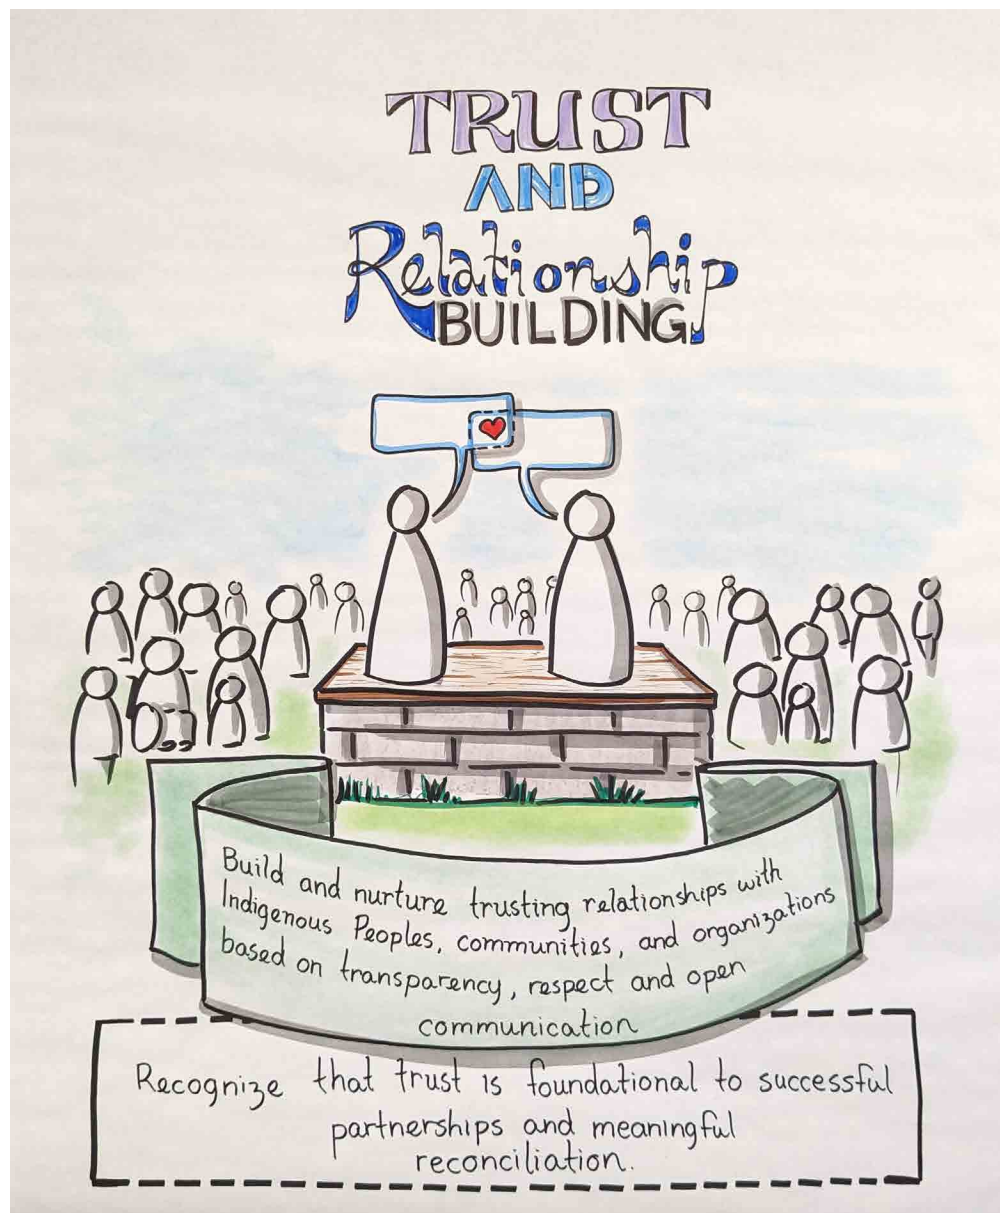 TRUST
AND
Relationship
BUILDING
Build and nurture trusting relationships with
Indigenous Peoples, communities, and organizations
based on transparency, respect and open
communication
Recognize that trust is foundational to successful
partnerships and meaningful
reconciliation.